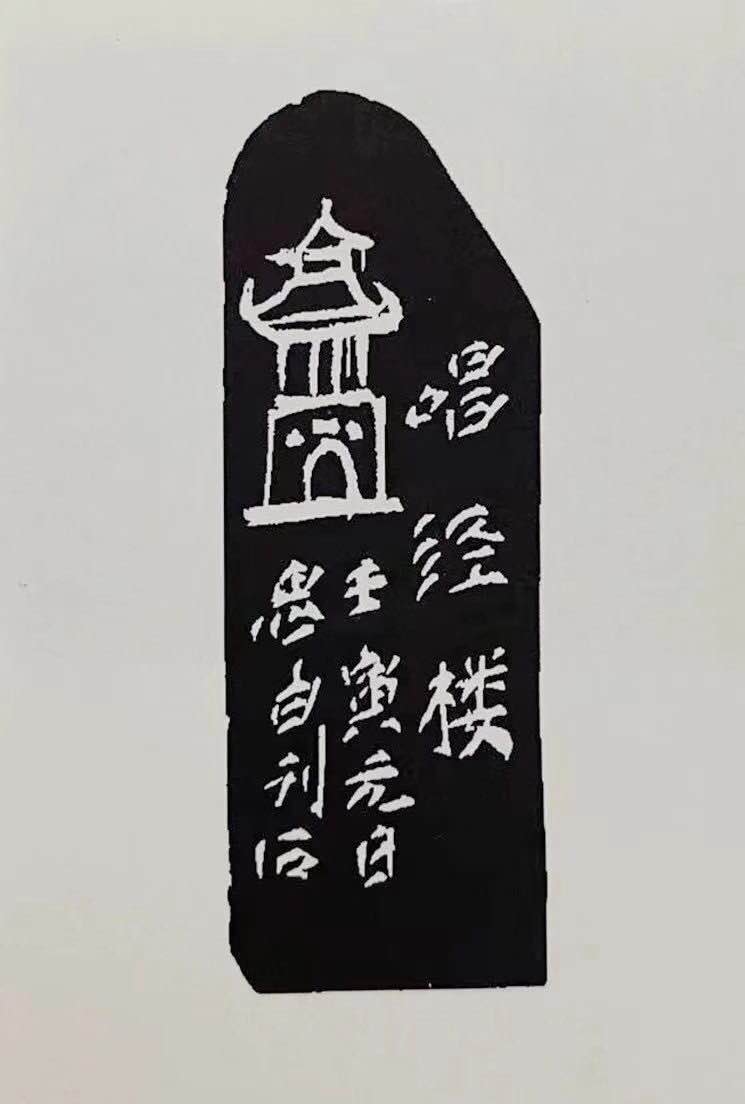 唱经楼
壬寅元日
愚白刊石